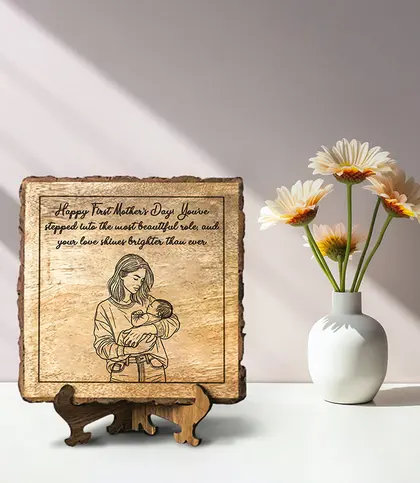 Happy First Mother's Day! You've
stepped into the most beautiful role, and
your love shines brighter than ever